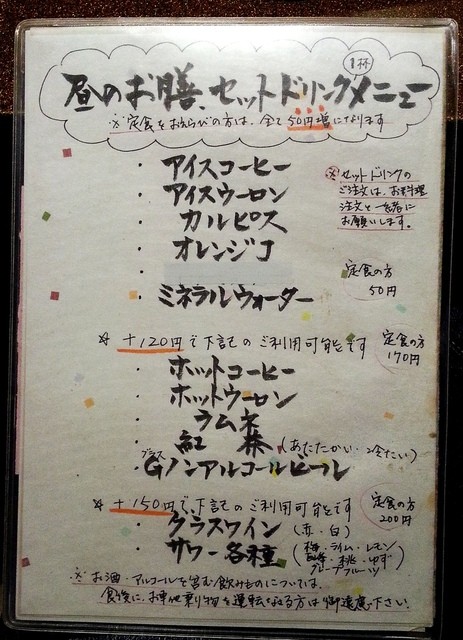 1杯
昼のお膳、セットドリンクメニュー
※定食をおえらびの方は、全て50円増になります
・アイスコーヒー
・アイスウーロン
・カルピス
・オレンジJ
・ミネラルウォーター
※セットドリンクの
ご注文は、お料理
注文と一緒に
お願いします。
定食の方
50円
☆ +120円で下記のご利用可能です
定食の方
170円
・ホットコーヒー
・ホットウーロン
・ラムネ
・紅茶(あたたかい・冷たい)
・グラスノンアルコールビール
☆ +150円で、下記のご利用可能です
定食の方
200円
・グラスワイン(赤・白)
・サワー各種(梅・ライム・レモン
・桃・ゆず
グレープフルーツ)
※お酒・アルコールを含む飲みものについては、
食後に、お車他乗り物を運転なさる方は御遠慮下さい。